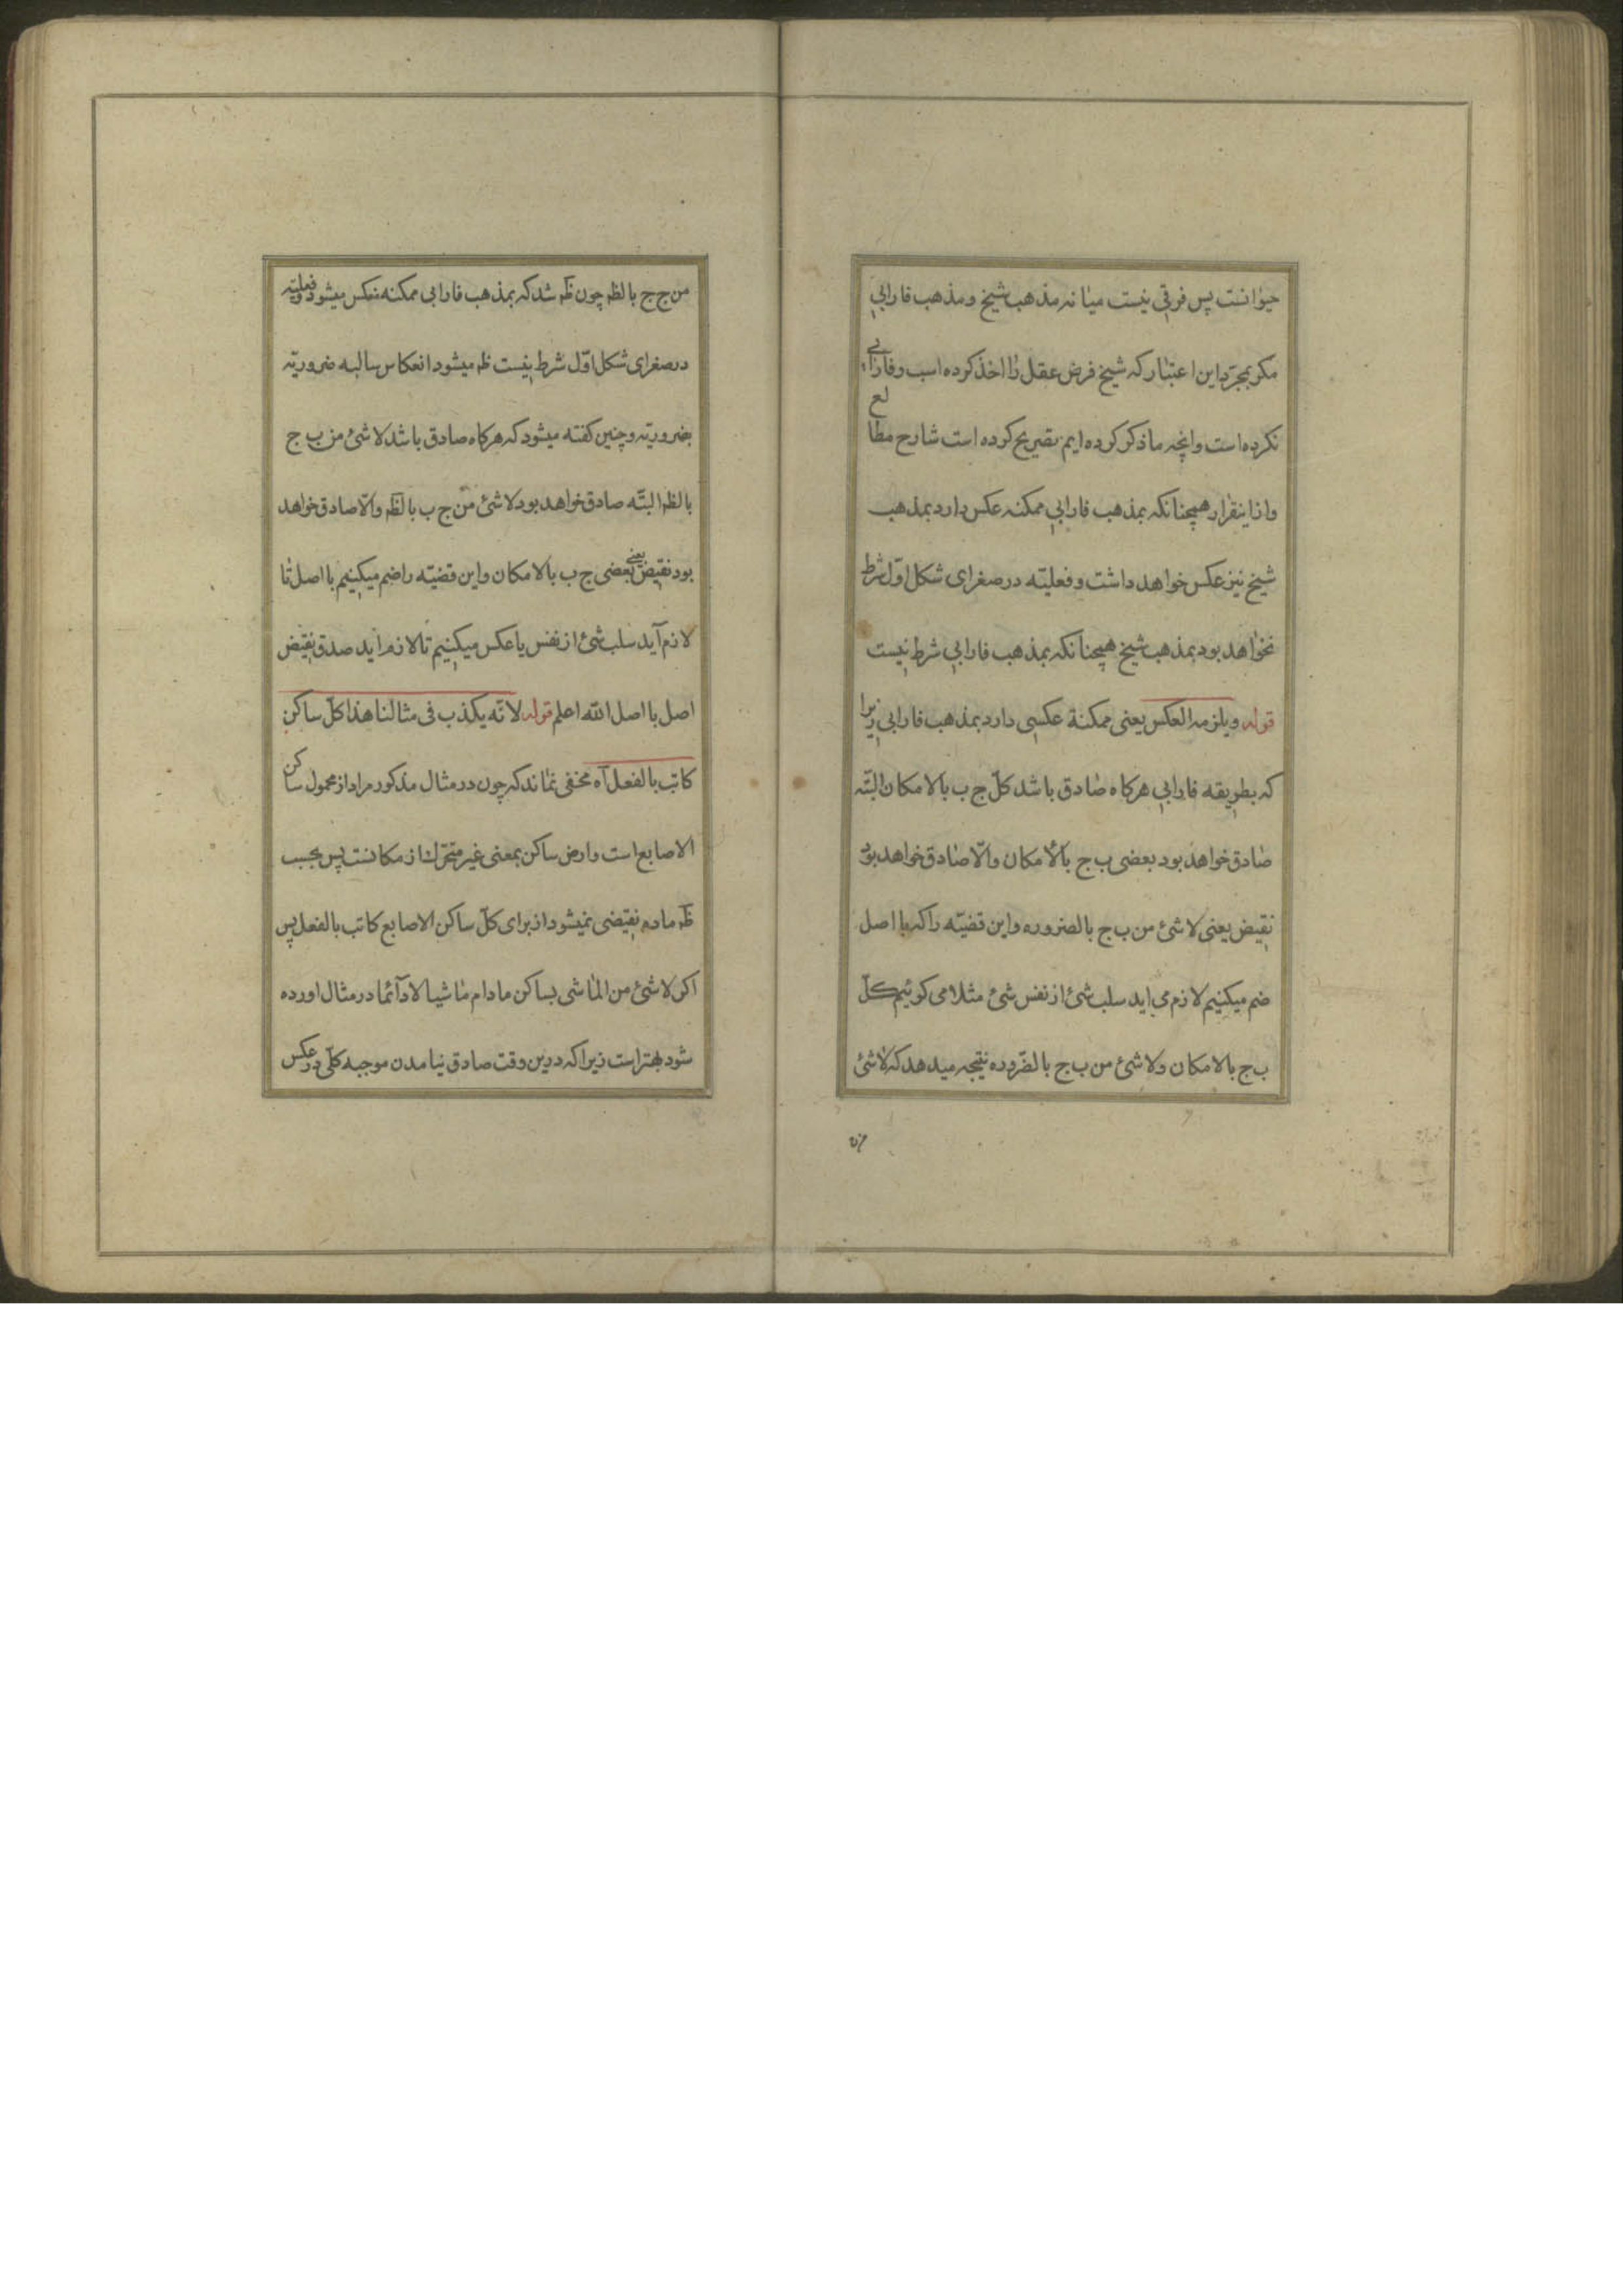 حیوانست پس فرقی نیست میانه مذهب شیخ و مذهب فارابی
مکر بمجرّد این اعتبار که شیخ فرض عقل را اخذ کرده است و فارابی
نکرده است وانچه ما ذکر کرده ایم تصریح کرده است شارح مطالع
واز اینقرار همچنانکه بمذهب فارابی ممکنه عکس دارد بمذهب
شیخ نیز عکس خواهد داشت و فعلیّه در صغرای شکل اوّل شرط
نخواهد بود بمذهب شیخ همچنانکه بمذهب فارابی شرط نیست
قوله ویلزمه العکس یعنی ممکنة عکسی دارد بمذهب فارابی زیرا
که بطریقه فارابی هرکاه صادق باشد کلّ ج ب بالامکان البتّه
صادق خواهد بود بعضی ب ج بالامکان والّا صادق خواهد بود
نقیض یعنی لاشئ من ب ج بالضروره واین قضیّه را که با اصل
ضم میکنیم لازم می اید سلب شئ از نفس شئ مثلا می کوئیم کلّ
ب ج بالامکان ولاشئ من ب ج بالضّروره نتیجه میدهد که لاشئ
من ج ج بالظه چون ظه شد که بمذهب فارابی ممکنه منعکس میشود وفعلیّه
در صغرای شکل اوّل شرط نیست ظه میشود انعکاس سالبه ضروریّه
بضروریّه وچنین کفته میشود که هرکاه صادق باشد لاشئ من ب ج
بالظه البتّه صادق خواهد بود لاشئ من ج ب بالظه والّا صادق خواهد
بود نقیض یعنی بعضی ج ب بالامکان واین قضیّه را ضم میکینم با اصل تا
لازم آید سلب شئ از نفس یا عکس میکینم تا لازم اید صدق نقیض
اصل با اصل الله اعلم قوله لانّه یکذب فی مثالنا هذا کلّ ساکن
کاتب بالفعل آه مخفی نماند که چون در مثال مذکور مراد از محمول ساکن
الاصابع است وارض ساکن بمعنی غیر متحرّک از مکانست پس بحسب
ظه ماده نقیضی نمیشود از برای کلّ ساکن الاصابع کاتب بالفعل پس
اکر لاشئ من الماشی بساکن مادام ماشیا لادآئما در مثال اورده
شود بهتر است زیرا که در ین وقت صادق نیامدن موجبه کلّی در عکس